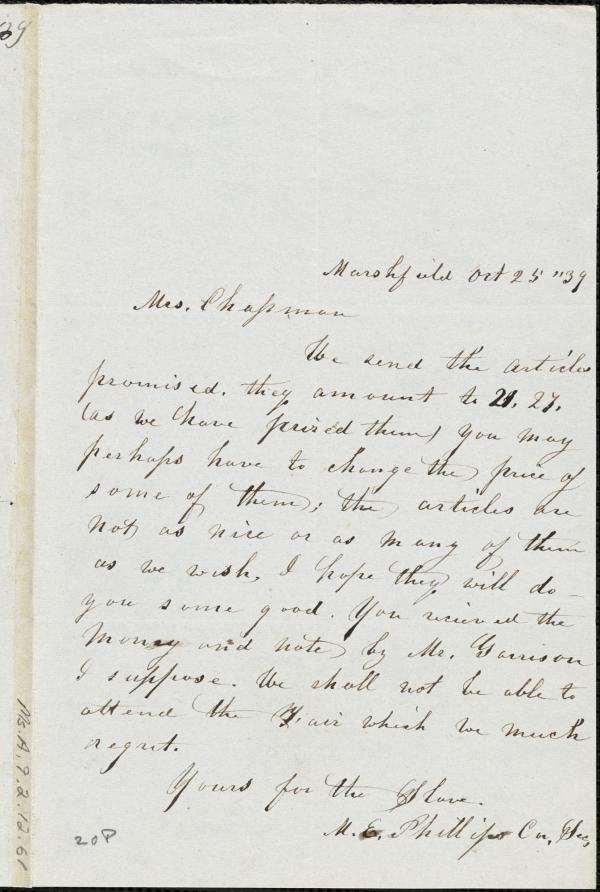 39
Marshfield Oct 25 "39
Mrs. Chapman
We send the articles
promised. they amount to 21. 27.
(as we have prized them) you may
perhaps have to change the price of
some of them; the articles are
not as nice or as many of them
as we wish, I hope they will do
you some good. You recieved the
Money and note by Mr. Garrison
I suppose. We shall not be able to
attend the Fair which we much
regret.
Yours for the Slave.
M. E. Phillips Cor, Sec,
20P
Ms.A.9.2.12.61